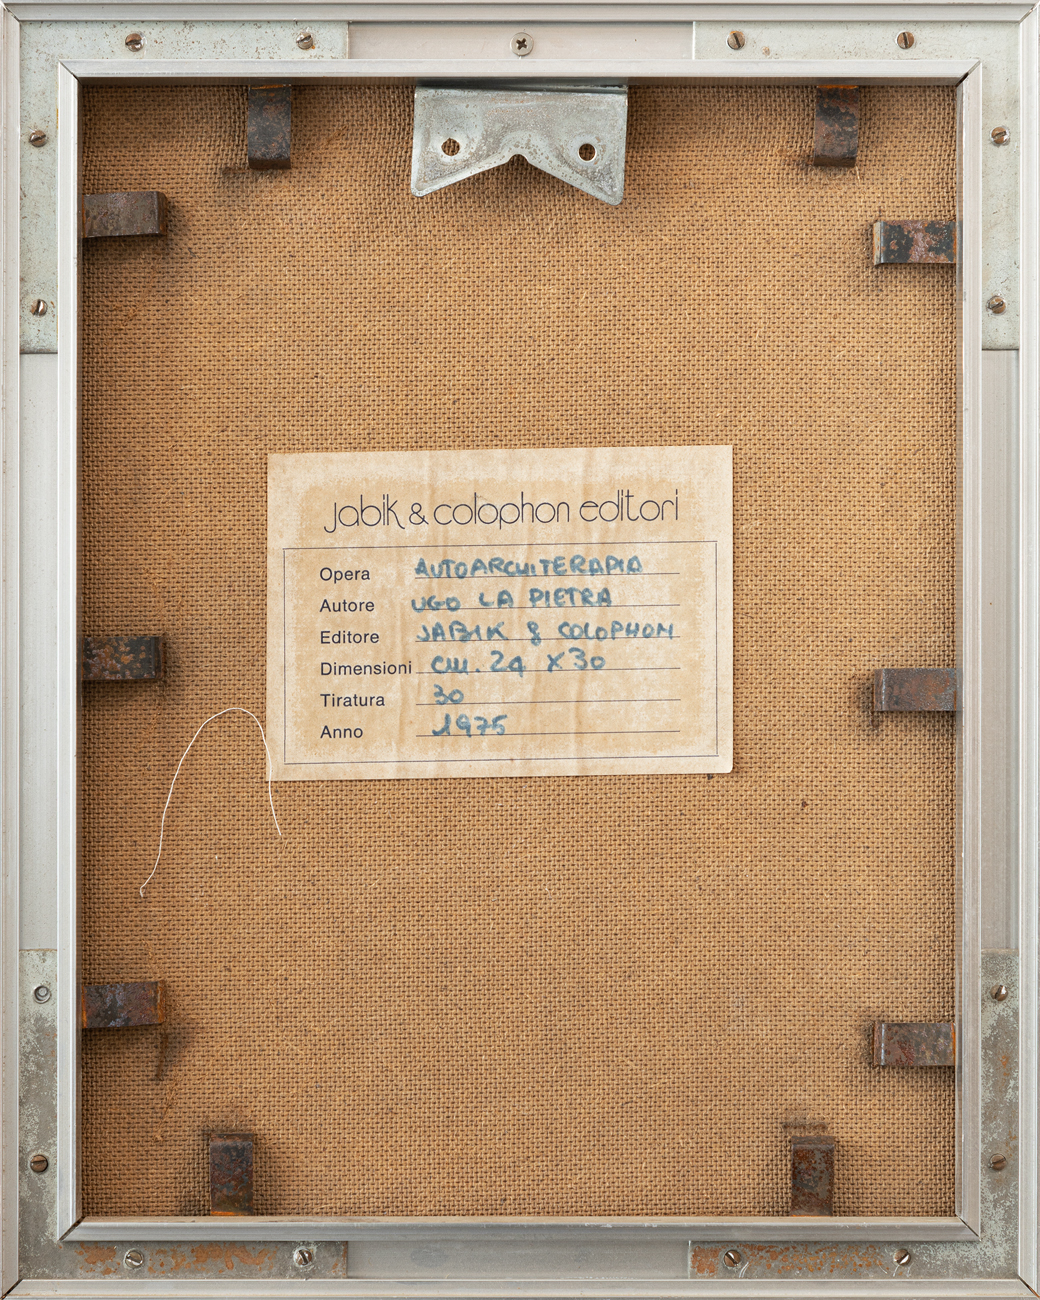 jabik & colophon editori
Opera AUTOARCHITERAPIA
Autore UGO LA PIETRA
Editore JABIK & COLOPHON
Dimensioni CM. 24 X 30
Tiratura 30
Anno 1975